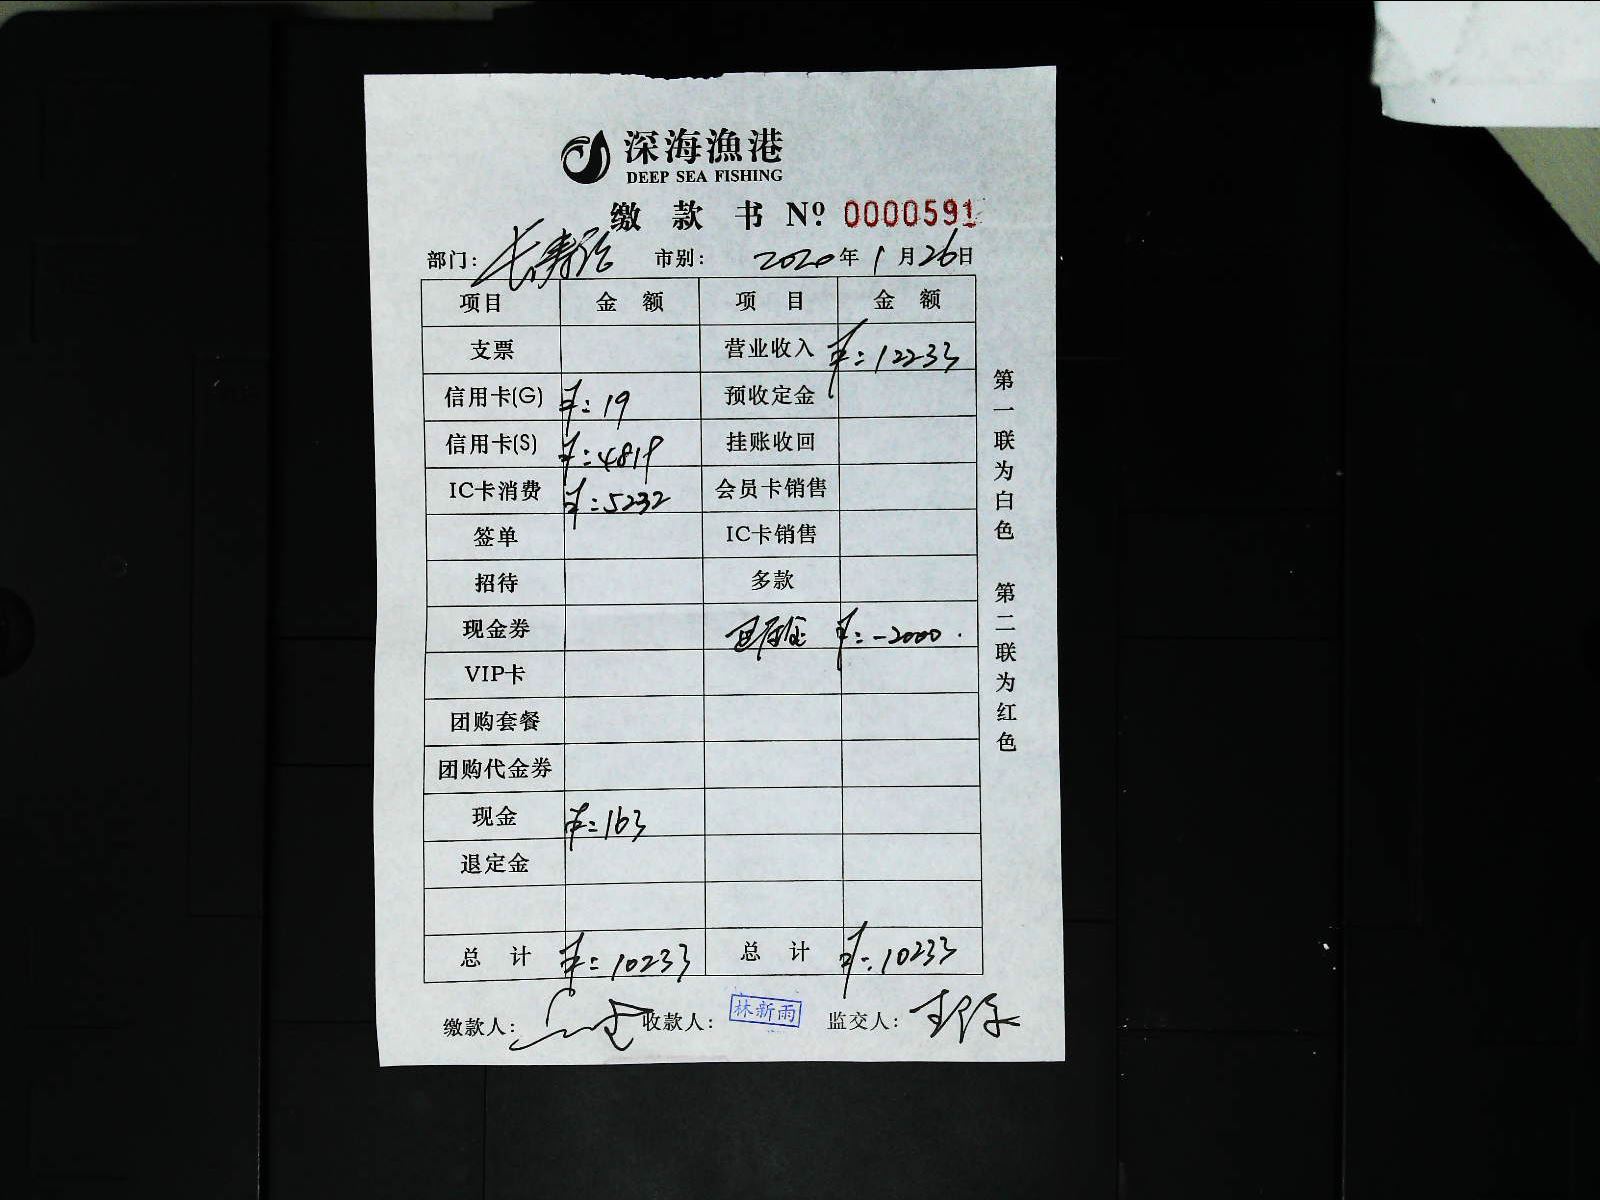 深海漁港
DEEP SEA FISHING
缴款书 Nº 0000591
部门：长寿路 市别： 2020年1月26日
项目 金额 项目 金额
支票 营业收入 ¥：12233
信用卡(G) ¥：19 预收定金
信用卡(S) ¥：4819 挂账收回
IC卡消费 ¥：5232 会员卡销售
签单 IC卡销售
招待 多款
现金券 ¥：-2000.
VIP卡
团购套餐
团购代金券
现金 ¥：163
退定金
总计 ¥：10233 总计 ¥：10233
缴款人： 收款人： 林新雨 监交人：
第一联为白色 第二联为红色